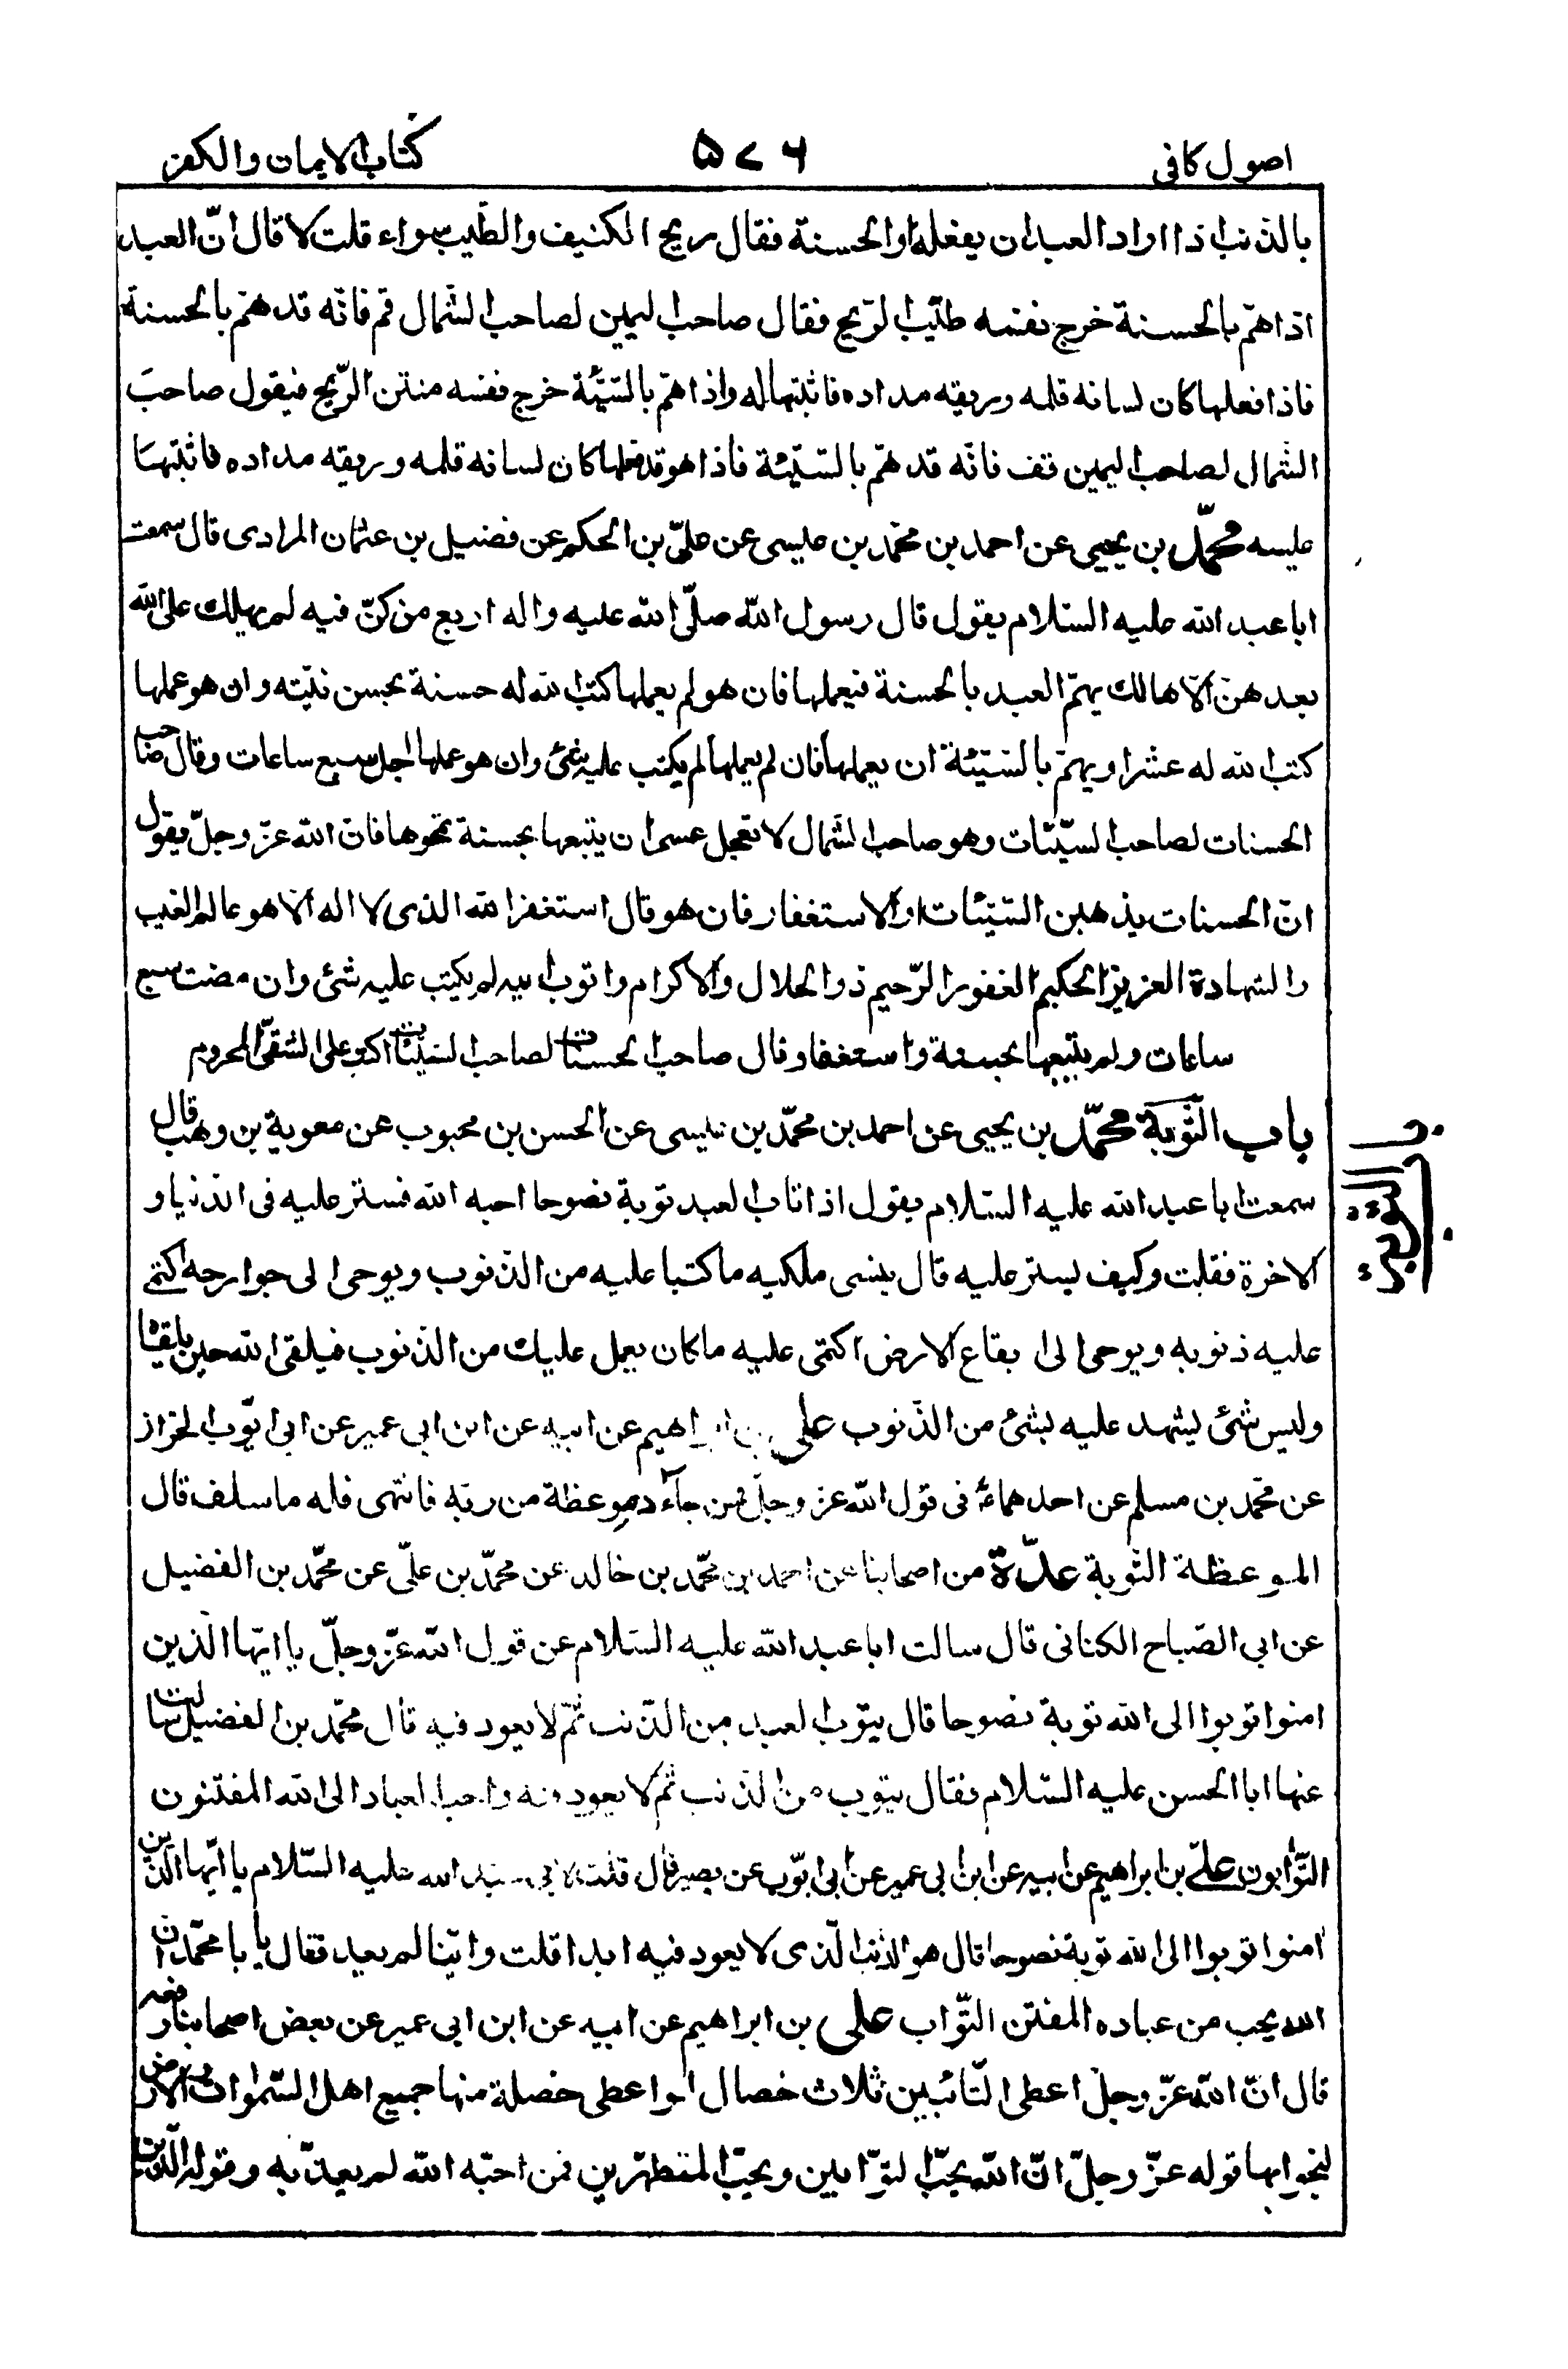 اصول كافى
٥٧٦
كتاب الايمان والكفر
بالذنب اذا اراد العبد ان يفعله او الحسنة فقال ريح الكنيف والطّيب سواء قلت لا قال انّ العبد
اذا همّ بالحسنة خرج نفسه طيّب الرّيح فقال صاحب اليمين لصاحب الشّمال قم فانّه قد همّ بالحسنة
فاذا فعلها كان لسانه قلمه وريقه مداده فاثبتها له واذا همّ بالسّيّئة خرج نفسه منتن الرّيح فيقول صاحب
الشمال لصاحب اليمين قف فانّه قد همّ بالسّيّئة فاذا هو قد فعلها كان لسانه قلمه وريقه مداده فاثبتها
عليه محمّد بن يحيى عن احمد بن محمّد بن عيسى عن علىّ بن الحكم عن فضيل بن عثمان المرادى قال سمعت
ابا عبد الله عليه السّلام يقول قال رسول الله صلّى الله عليه واله اربع من كنّ فيه لم يهلك على الله
بعد هنّ الّا هالك يهمّ العبد بالحسنة فيعملها فان هو لم يعملها كتب الله له حسنة بحسن نيّته وان هو عملها
كتب الله له عشرا ويهمّ بالسّيّئة ان يعملها فان لم يعملها لم يكتب عليه شئ وان هو عملها اجل سبع ساعات وقال صاحب
الحسنات لصاحب السّيّئات وهو صاحب الشّمال لا تعجل عسى ان يتبعها بحسنة تمحوها فان الله عزّ وجلّ يقول
انّ الحسنات يذهبن السّيّئات او الاستغفار فان هو قال استغفر الله الذى لا اله الّا هو عالم الغيب
والشهادة العزيز الحكيم الغفور الرّحيم ذو الجلال والاكرام واتوب اليه لم يكتب عليه شئ وان مضت سبع
ساعات ولم يتبعها بحسنة واستغفار قال صاحب الحسنات لصاحب السّيّئات اكتب على الشقىّ المحروم
باب التّوبة محمّد بن يحيى عن احمد بن محمّد بن عيسى عن الحسن بن محبوب عن معوية بن وهب قال
سمعت ابا عبد الله عليه السّلام يقول اذا تاب العبد توبة نصوحا احبه الله فستر عليه فى الدّنيا و
الاخرة فقلت وكيف يستر عليه قال ينسى ملكيه ما كتبا عليه من الذّنوب ويوحى الى جوارحه اكتمى
عليه ذنوبه ويوحى الى بقاع الارض اكتمى عليه ما كان يعمل عليك من الذّنوب فيلقى الله حين يلقاه
وليس شئ يشهد عليه بشئ من الذّنوب على بن ابراهيم عن ابيه عن ابن ابى عمير عن ابى ايّوب الخزاز
عن محمّد بن مسلم عن احدهما ع فى قول الله عزّ وجلّ فمن جاءه موعظة من ربّه فانتهى فله ما سلف قال
الموعظة التّوبة عدّة من اصحابنا عن احمد بن محمّد بن خالد عن محمّد بن علىّ عن محمّد بن الفضيل
عن ابى الصّباح الكنانى قال سالت ابا عبد الله عليه السّلام عن قول الله عزّ وجلّ يا ايّها الّذين
امنوا توبوا الى الله توبة نصوحا قال يتوب العبد من الذّنب ثمّ لا يعود فيه قال محمّد بن الفضيل سالت
عنها ابا الحسن عليه السّلام فقال يتوب من الذّنب ثمّ لا يعود فيه واحب العباد الى الله المفتنون
التّوّابون علىّ بن ابراهيم عن ابيه عن ابن ابى عمير عن ابى ايّوب عن بصير قال قلت لابى عبد الله عليه السّلام يا ايّها الّذين
امنوا توبوا الى الله توبة نصوحا قال هو الذّنب الّذى لا يعود فيه ابدا قلت وايّنا لم يعد فقال يا با محمّد انّ
الله يحب من عباده المفتن التّواب على بن ابراهيم عن ابيه عن ابن ابى عمير عن بعض اصحابنا رفعه
قال انّ الله عزّ وجلّ اعطى التّائبين ثلاث خصال لو اعطى خصلة منها جميع اهل السّموات والارض
لنجوا بها قوله عزّ وجلّ انّ الله يحبّ التّوّابين ويحبّ المتطهّرين فمن احبّه الله لم يعذّبه وقوله الّذين